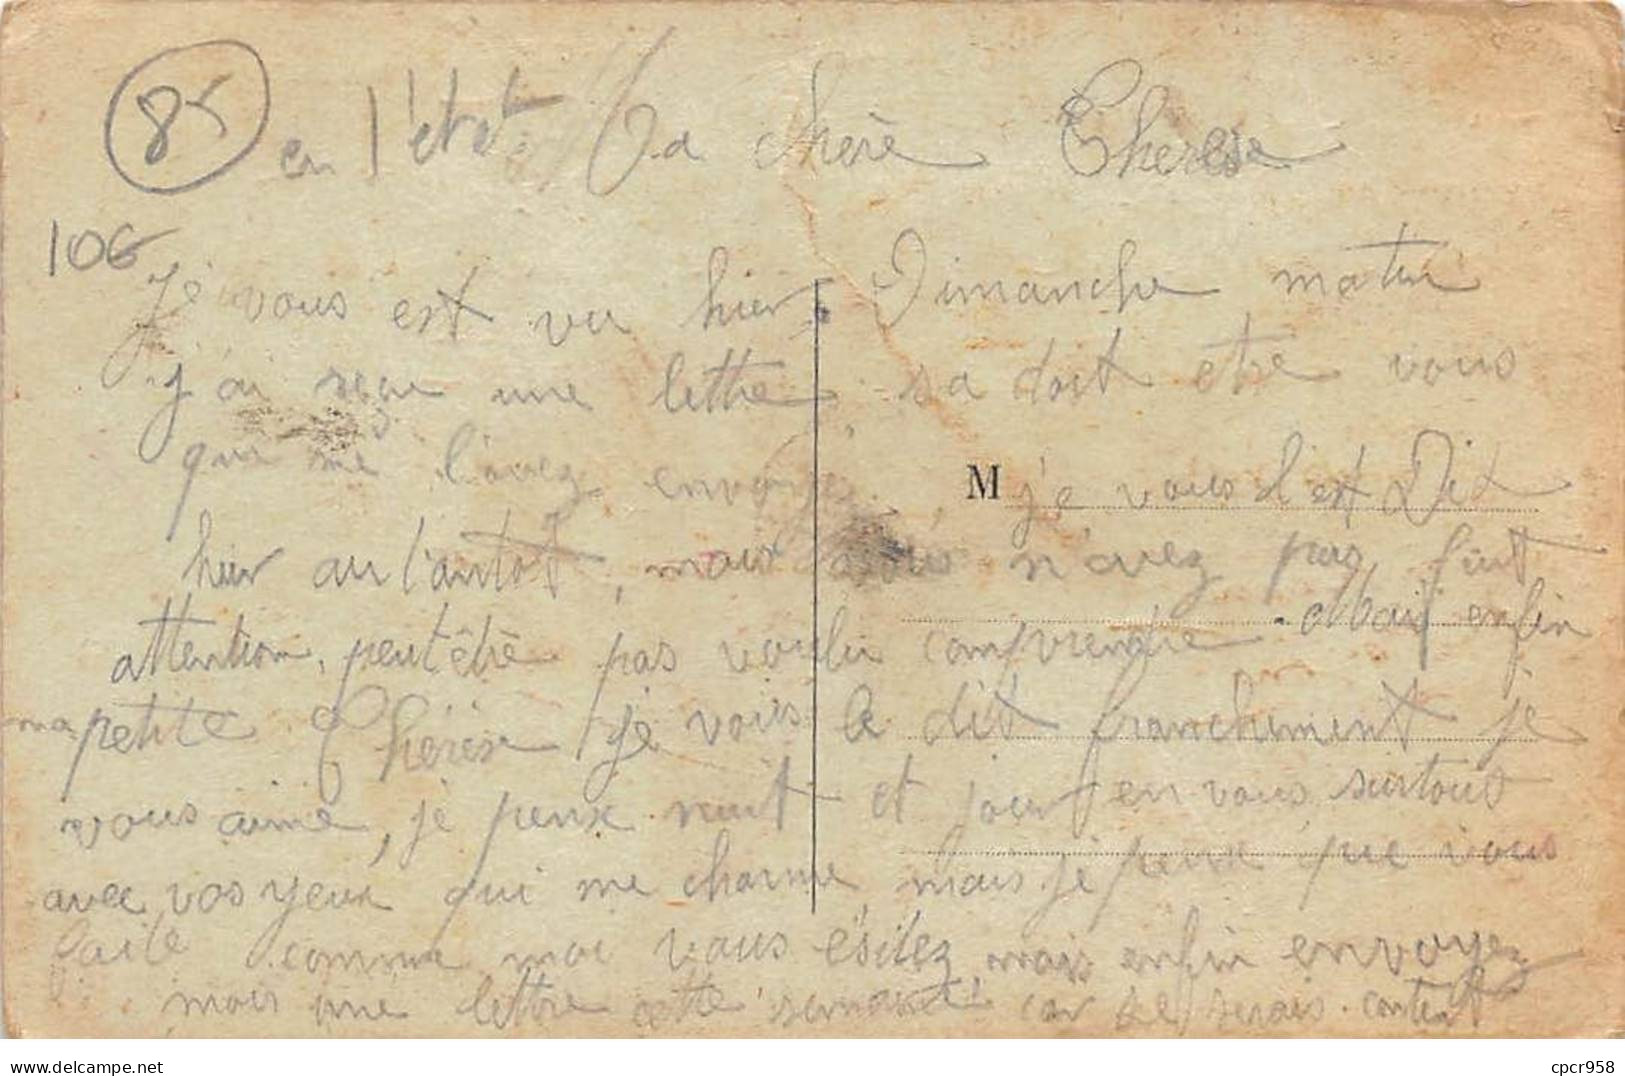 85
en l'état
Ma chère Therese
10€
Je vous est vu hier, Dimanche matin
j'ai reçu une lettre, sa doit etre vous
qui me l'avez envoyé,
M je vous l'est Dit
hier au tantot, mais vous n'avez pas fait
attention, peut être pas voulu comprendre. enfin
ma petite Thérèse je vous le dit franchement je
vous aime, je pense nuit et jour en vous surtout
avec vos yeux qui me charme, mais je pense que vous
faite comme moi vous ésitez, mais enfin envoyez
mois une lettre cette semaine car je serais content
Delcampe.net
cpcr958